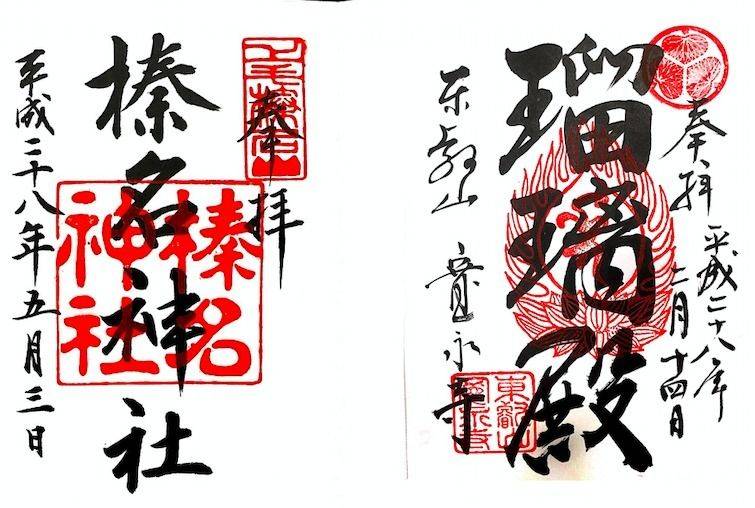 奉拝
榛名神社
平成二十八年五月三日
榛名
神社
奉拝
平成二十八年
二月十四日
瑠璃殿
東叡山 寛永寺
東叡山
寛永寺